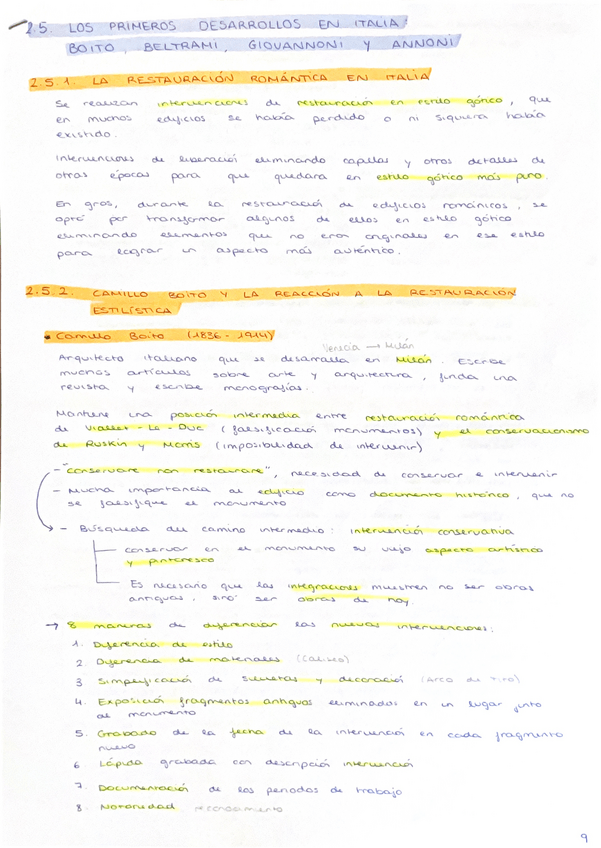 2.5. LOS PRIMEROS DESARROLLOS EN ITALIA:
BOITO, BELTRAMI, GIOVANNONI Y ANNONI
2.5.1. LA RESTAURACIÓN ROMÁNTICA EN ITALIA
Se realizan intervenciones de restauración en estilo gótico, que
en muchos edificios se había perdido o ni siquiera había
existido.
Intervenciones de liberación eliminando capillas y otros detalles de
otras épocas para que quedara en estilo gótico más puro.
En gros, durante la restauración de edificios románicos, se
optó por transformar algunos de ellos en estilo gótico
eliminando elementos que no eran originales en ese estilo
para lograr un aspecto más auténtico.
2.5.2. CAMILLO BOITO Y LA REACCIÓN A LA RESTAURACIÓN
ESTILÍSTICA
• Camillo Boito (1836 - 1914)
Venecia → Milán
Arquitecto italiano que se desarrolla en Milán. Escribe
muchos artículos sobre arte y arquitectura, funda una
revista y escribe monografías.
Mantiene una posición intermedia entre restauración romántica
de Viollet - Le - Duc (falsificació monumentos) y el conservacionismo
de Ruskin y Morris (imposibilidad de intervenir)
- "conservare non restaurare", necesidad de conservar e intervenir
- Mucha importancia al edificio como documento histórico, que no
se falsifique el monumento
→ - Búsqueda del camino intermedio: intervenció conservativa
conservar en el monumento su viejo aspecto artístico
y pintoresco
Es necesario que las integraciones muestren no ser obras
antiguas, sino ser obras de hoy.
→ 8 maneras de diferenciar las nuevas intervenciones:
1. Diferencia de estilo
2. Diferencia de materiales (Coliseo)
3. Simplificació de siluetas y decoració (Arco de Tito)
4. Exposició fragmentos antiguos eliminados en un lugar junto
al monumento
5. Grabado de la fecha de la intervenció en cada fragmento
nuevo
6. Lápida grabada con descripció intervenció
7. Documentació de los periodos de trabajo
8. Notoriedad reconocimiento
9